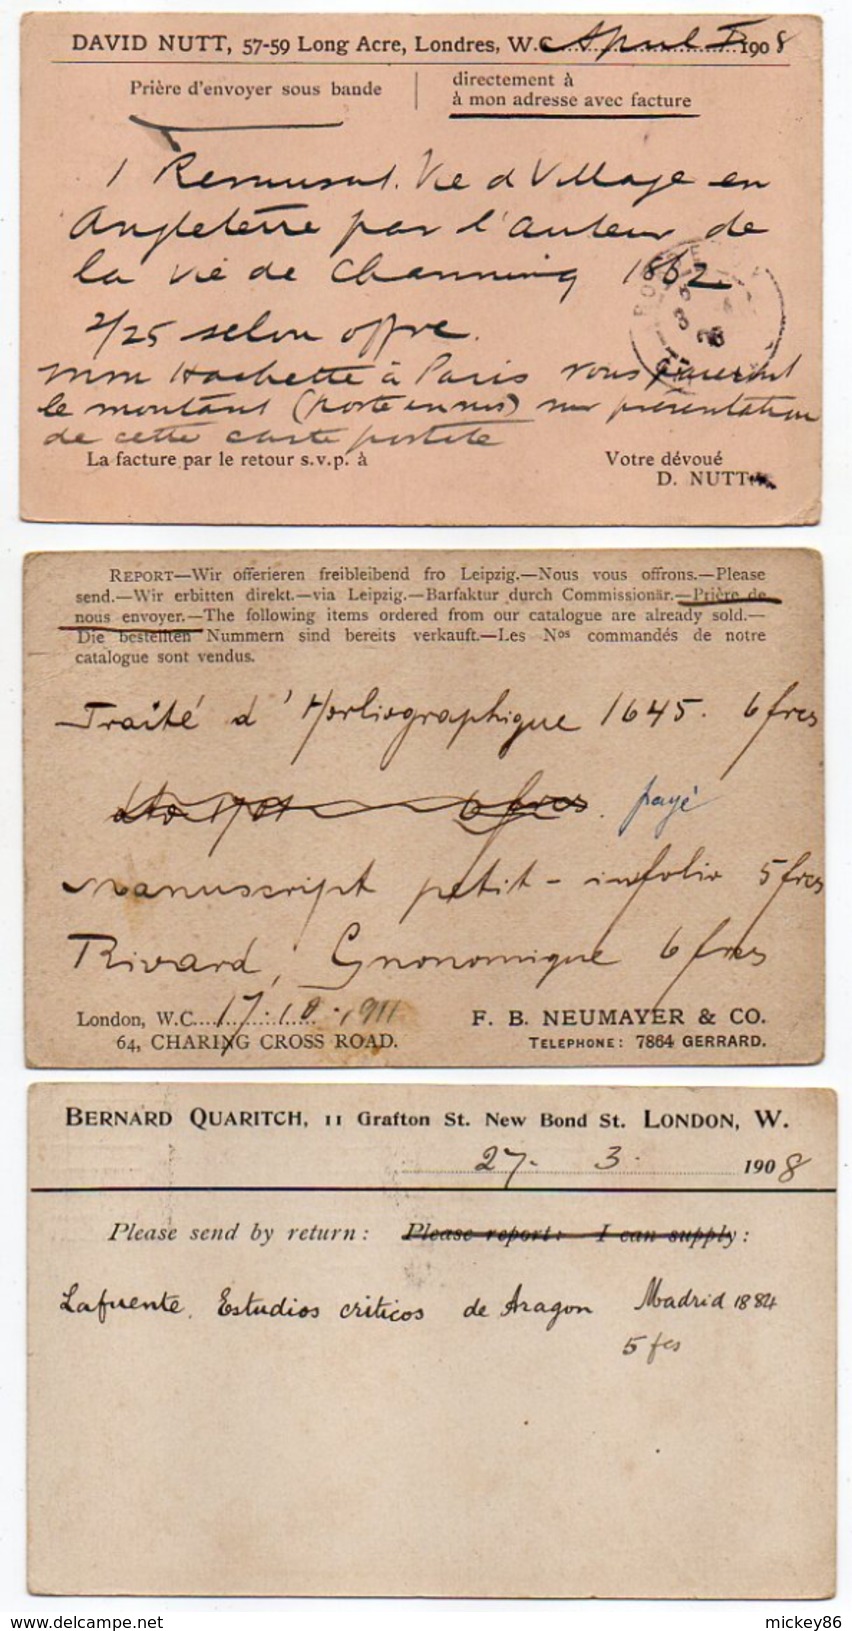 DAVID NUTT, 57-59 Long Acre, Londres, W.C. April 1908
Prière d'envoyer sous bande
directement à
à mon adresse avec facture
1 Remusat. Vie d Village en
Angleterre par l'auteur de
la vie de Channing 1862.
2/25 selon offre.
mm Hachette à Paris vous
le montant (porte en sus) sur présentation
de cette carte postale
La facture par le retour s.v.p. à
Votre dévoué
D. NUTT
REPORT—Wir offerieren freibleibend fro Leipzig.—Nous vous offrons.—Please
send.—Wir erbitten direkt.—via Leipzig.—Barfaktur durch Commissionär.—Prière de
nous envoyer.—The following items ordered from our catalogue are already sold.—
Die bestellten Nummern sind bereits verkauft.—Les Nos commandés de notre
catalogue sont vendus.
Traité d'Horliographique 1645. 6 frcs
6 frcs. payé
Manuscript petit-infolio 5 frcs
Rivard, Gnonomique 6 frcs
London, W.C. 17.10.1911
64, CHARING CROSS ROAD.
F. B. NEUMAYER & CO.
TELEPHONE: 7864 GERRARD.
BERNARD QUARITCH, 11 Grafton St. New Bond St. LONDON, W.
27. 3. 1908
Please send by return: Please report: I can supply:
Lafuente. Estudios criticos de Aragon Madrid 1884
5 fcs
mickey86